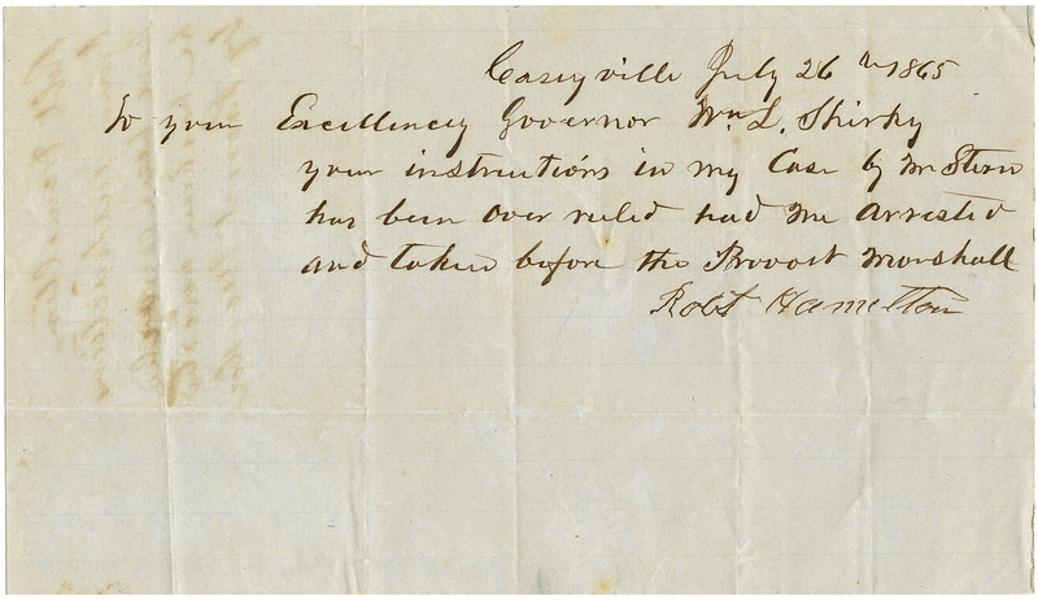 Caseyville July 26th 1865
To your Excellency Governor Wm. L. Shirky
your instructions in my Case by Mr Stern
has been over ruled had me arrested
and taken before the Provost Marshall
Robt Hamelton